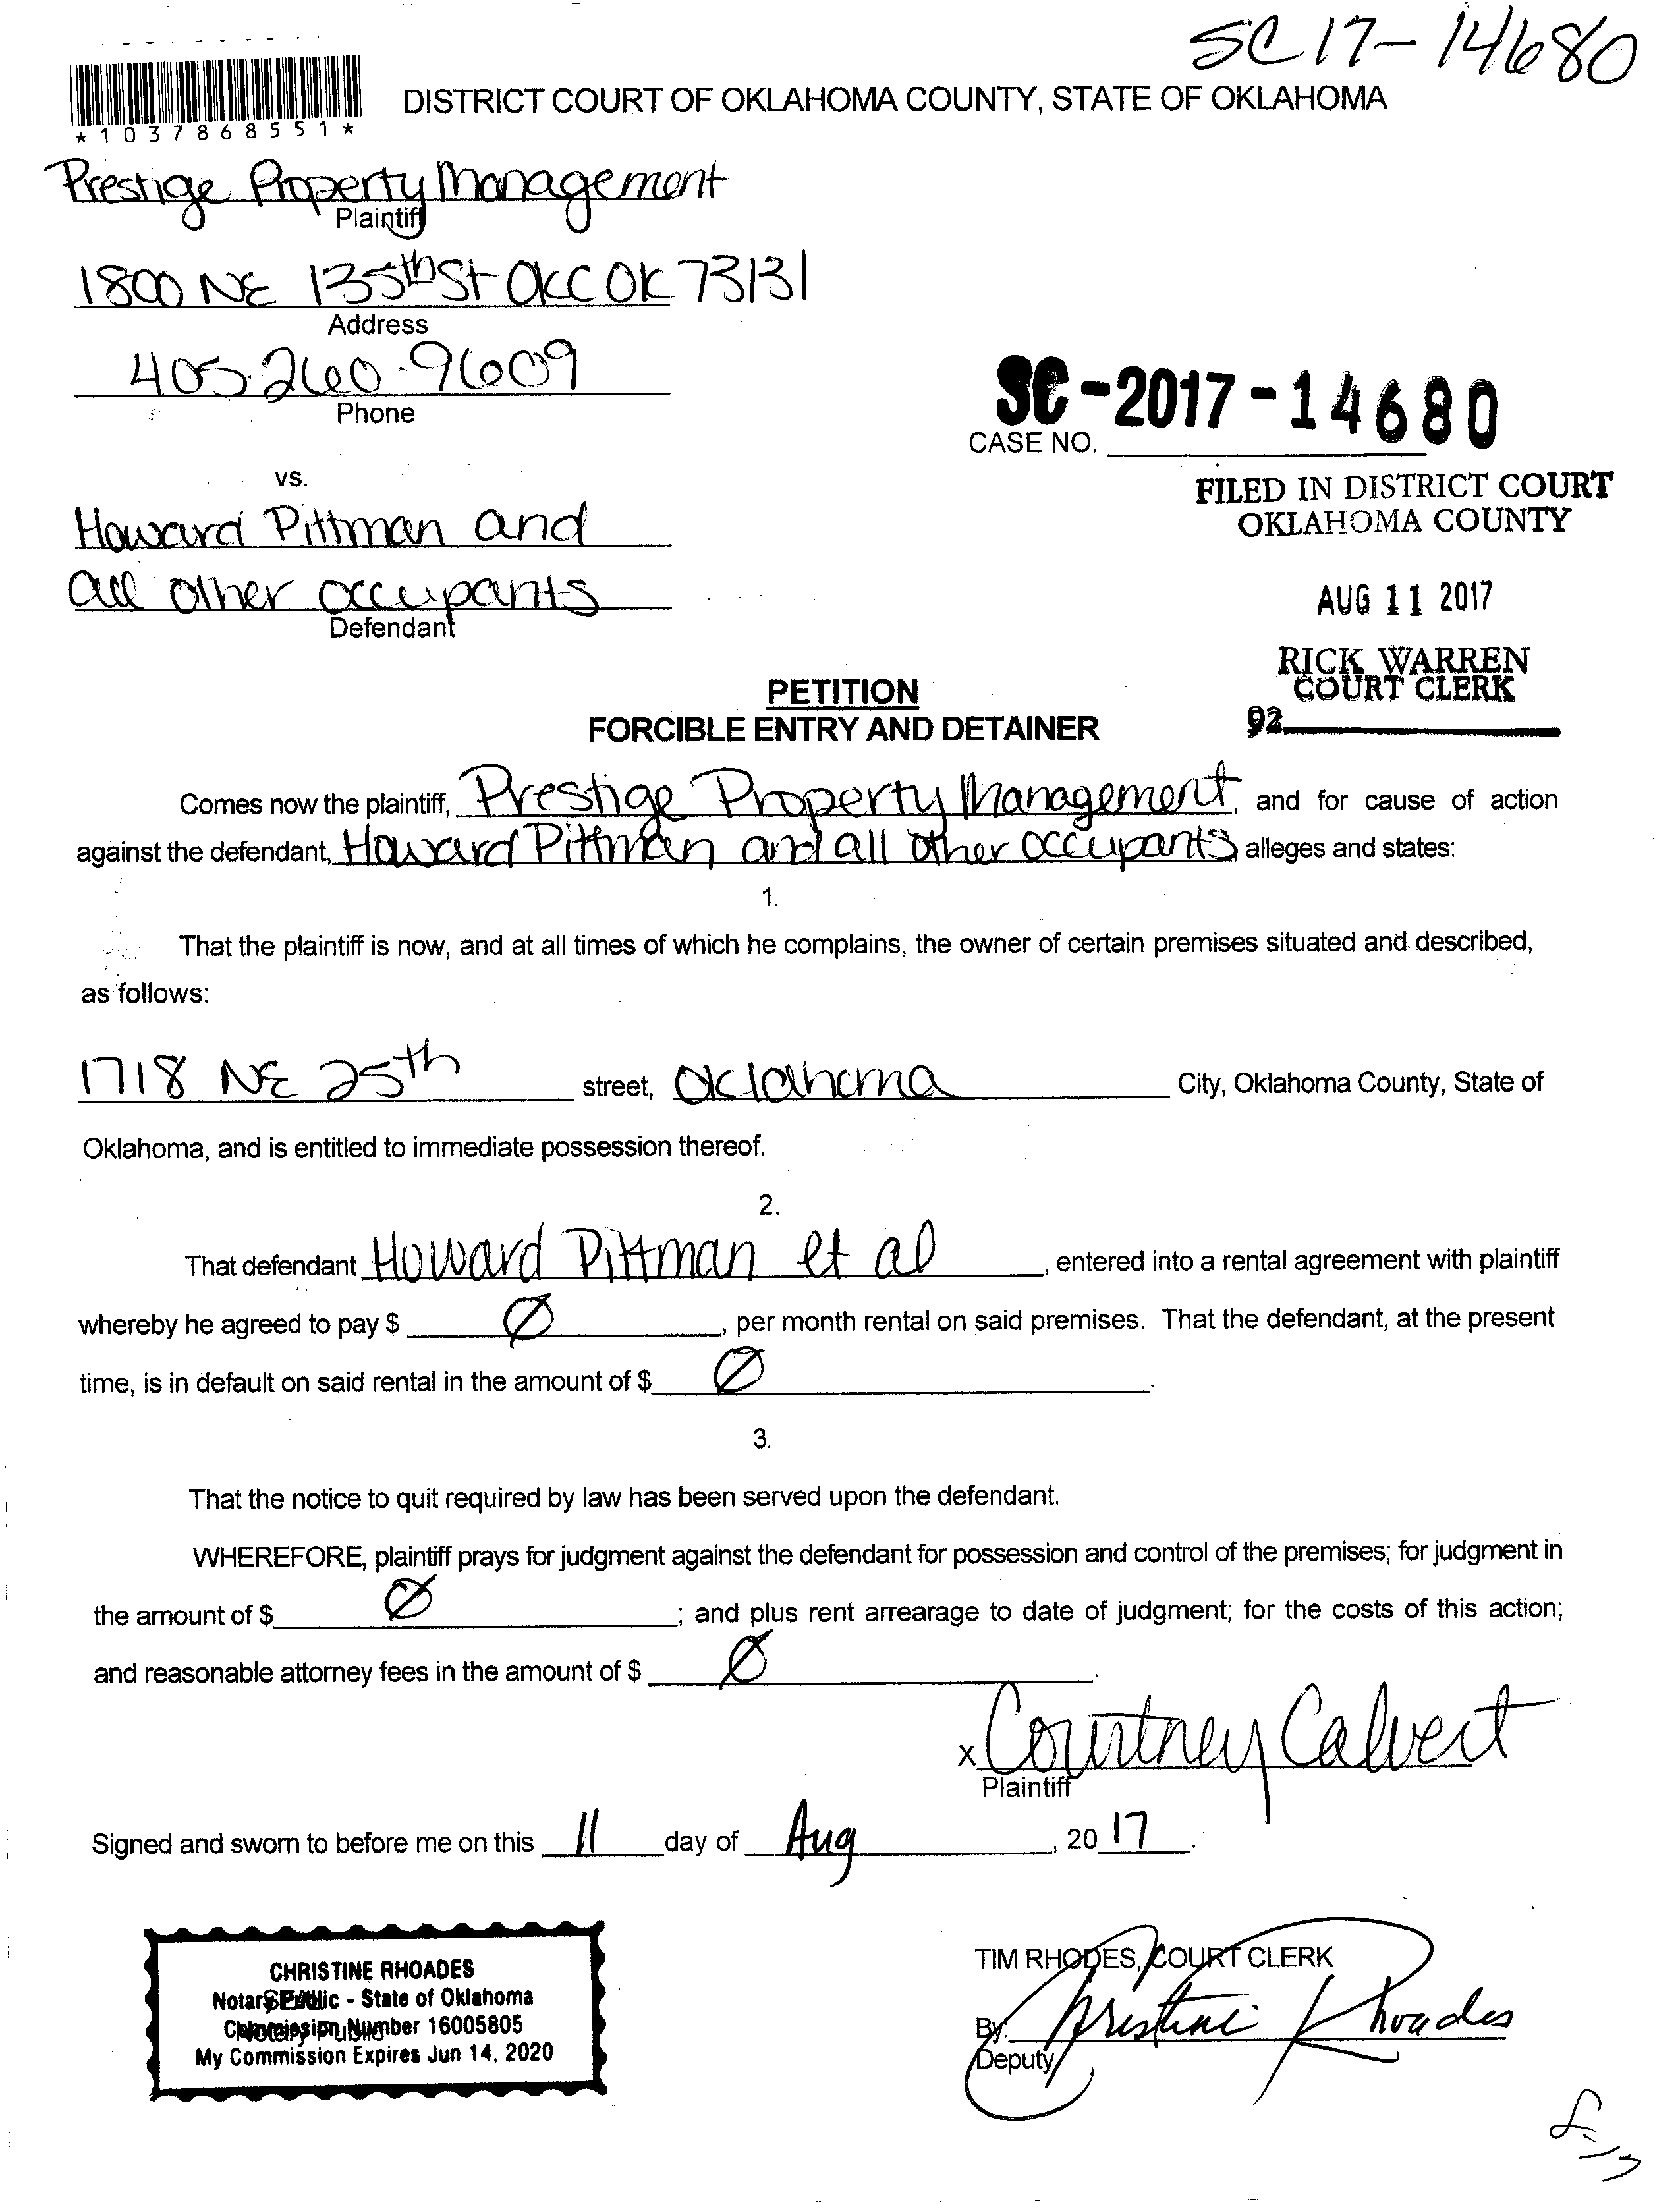 SC17-14680
*1037868551*
DISTRICT COURT OF OKLAHOMA COUNTY, STATE OF OKLAHOMA
Prestige Property Management
Plaintiff
1800 NE 135th St OKC OK 73131
Address
405.260.9609
Phone
SC-2017-14680
CASE NO.
vs.
FILED IN DISTRICT COURT
OKLAHOMA COUNTY
Howard Pittman and
all other occupants
Defendant
AUG 11 2017
RICK WARREN
COURT CLERK
92
PETITION
FORCIBLE ENTRY AND DETAINER
Comes now the plaintiff, Prestige Property Management, and for cause of action
against the defendant, Howard Pittman and all other occupants alleges and states:
1.
That the plaintiff is now, and at all times of which he complains, the owner of certain premises situated and described,
as follows:
1718 NE 25th street, Oklahoma City, Oklahoma County, State of
Oklahoma, and is entitled to immediate possession thereof.
2.
That defendant Howard Pittman et al, entered into a rental agreement with plaintiff
whereby he agreed to pay $ Ø, per month rental on said premises. That the defendant, at the present
time, is in default on said rental in the amount of $ Ø.
3.
That the notice to quit required by law has been served upon the defendant.
WHEREFORE, plaintiff prays for judgment against the defendant for possession and control of the premises; for judgment in
the amount of $ Ø; and plus rent arrearage to date of judgment; for the costs of this action;
and reasonable attorney fees in the amount of $ Ø.
x Courtney Calvert
Plaintiff
Signed and sworn to before me on this 11 day of Aug, 2017.
CHRISTINE RHOADES
Notary Public - State of Oklahoma
Commission Number 16005805
My Commission Expires Jun 14, 2020
TIM RHODES, COURT CLERK
By: Christine Rhoades
Deputy